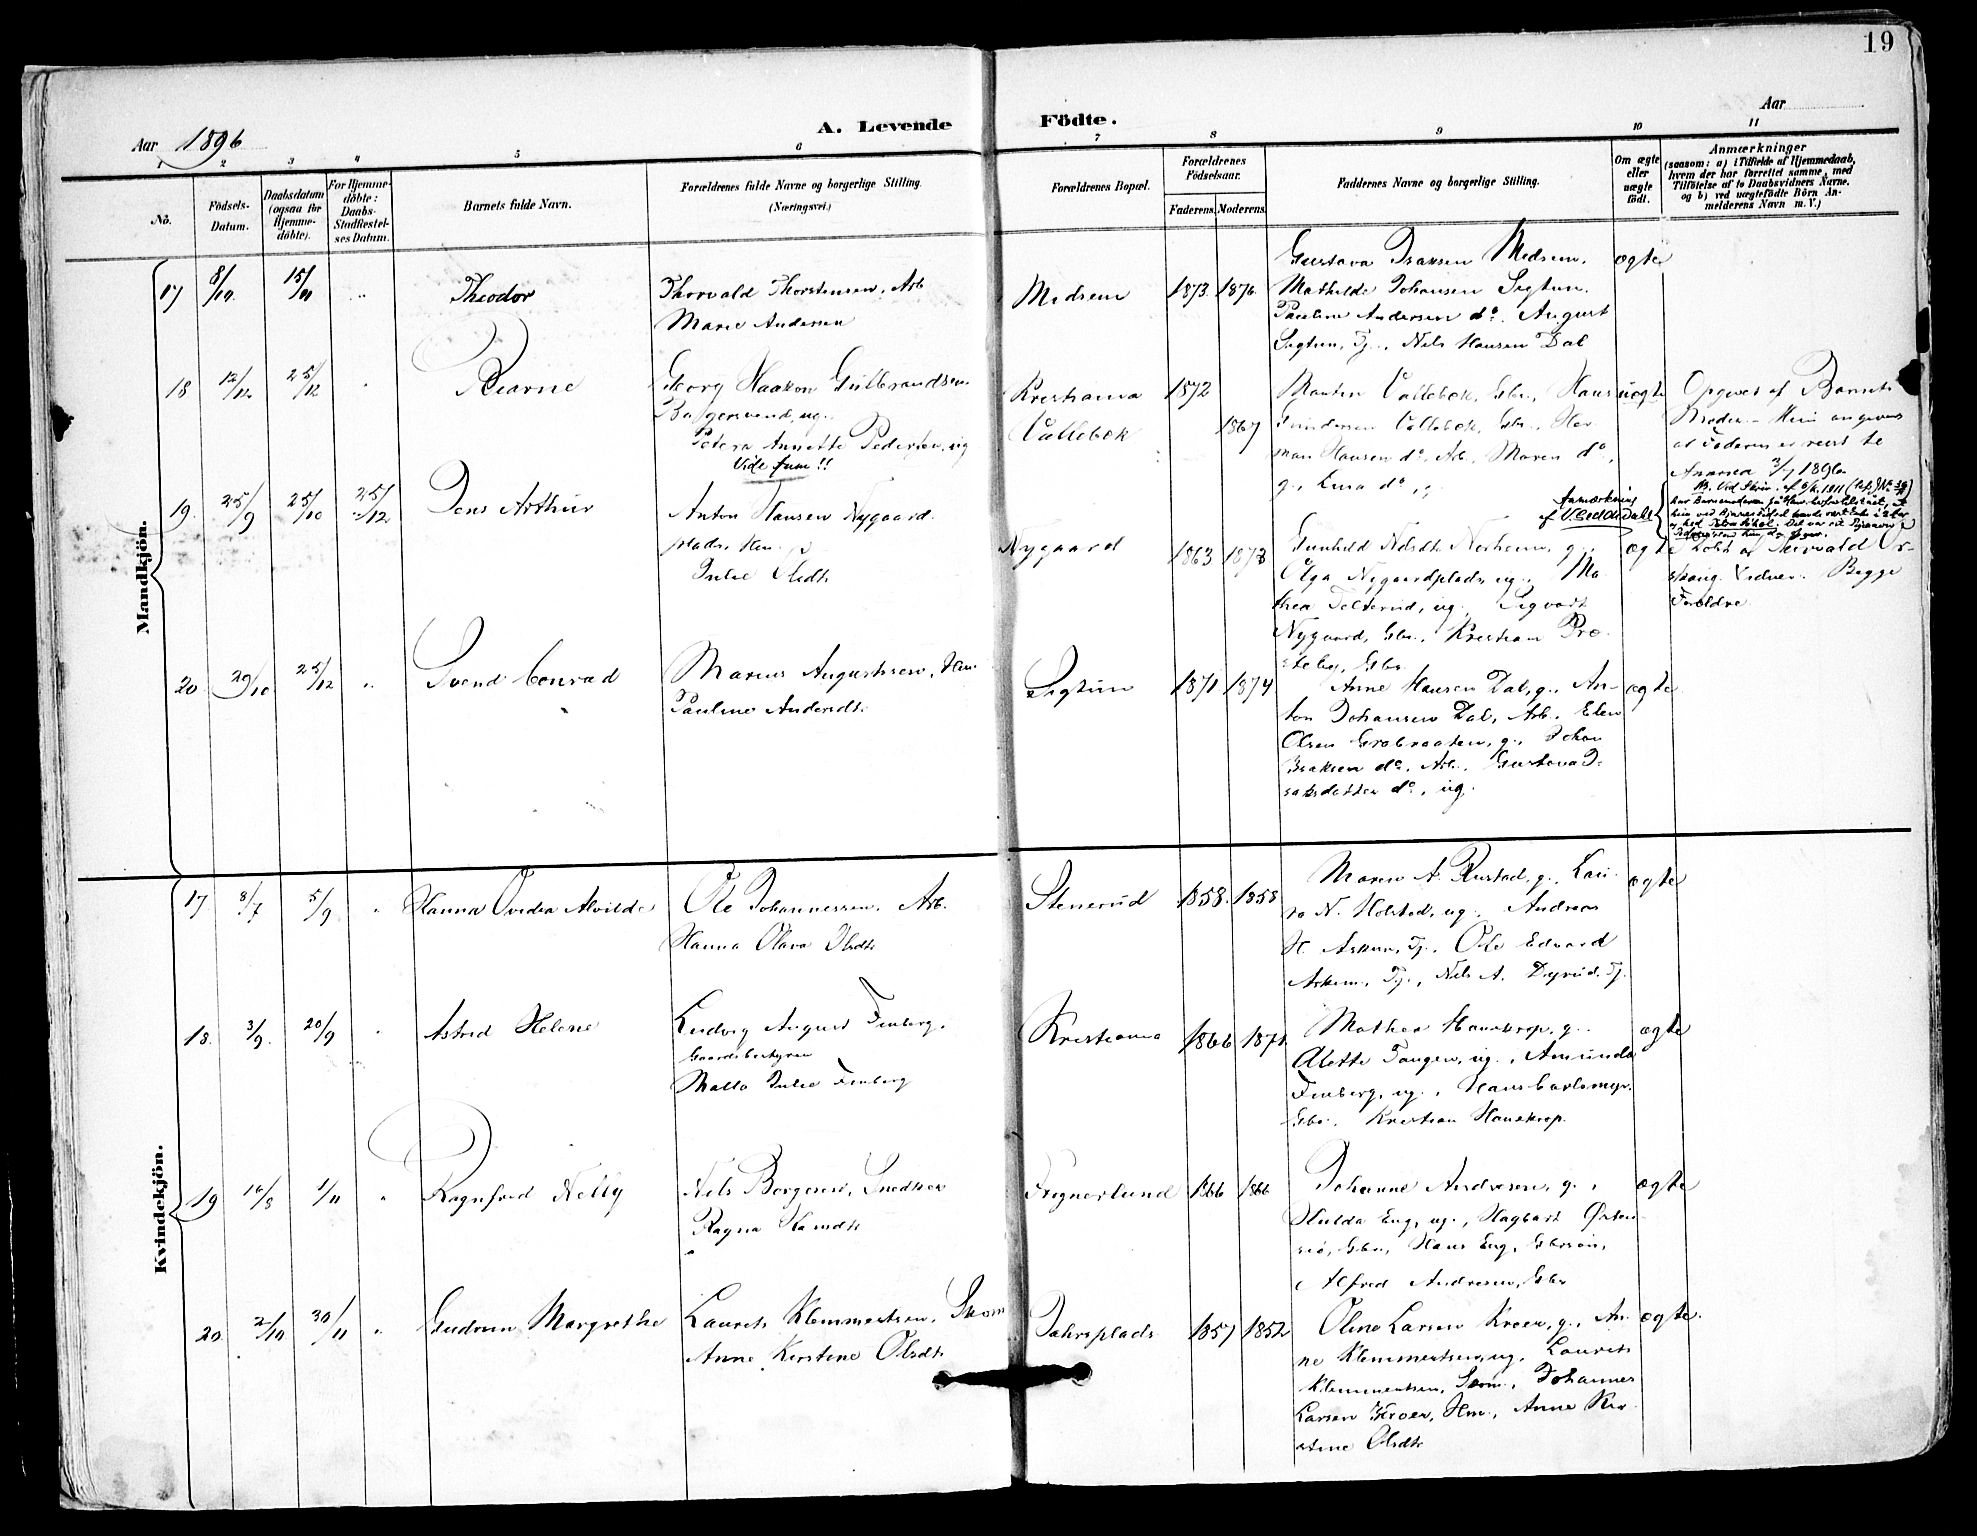 19
Aar 1896
A. Levende Födte.
Aar
1 2 3 4 5 6 7 8 9 10 11
No.
Födsels-Datum.
Daabsdatum (ogsaa for Hjemme-döbte).
For Hjemme-döbte: Daabs-Stadfæstel-ses Datum.
Barnets fulde Navn.
Forældrenes fulde Navne og borgerlige Stilling.
(Næringsvei.)
Forældrenes Bopæl.
Forældrenes Födselsaar.
Faderens. Moderens.
Faddernes Navne og borgerlige Stilling.
Om ægte eller uægte födt.
Anmærkninger
(saasom: a) i Tilfælde af Hjemmedaab,
hvem der har forrettet samme, med
Tilföielse af to Daabsvidners Navne.
og b) ved uægtefödte Börn An-
melderens Navn m. V.)
Mandkjön.
17 8/10 15/11 Theodor
Thorvald Thorstensen, Arb.
Marie Andersen
Medsem 1873 1876
Gustava Isaksen Medsem.
Mathilde Johansen Sigtun.
Pauline Andersen do. August
Sigtun, Tj., Nils Hansen Dal
ægte
18 12/12 25/12 Bearne
Georg Haakon Gulbrandsen
ug.
Petera Annette Pedersen, ug
Vide fum!!
Kristiania 1872
Vallebæk 1867
Morten Vallebæk, Gbr., Hans
Vallebæk, Gbr., Her
man Hansen do. Arb., Maren do.,
g., do,
uægte
Opgivet af Barnets
Moder. Hun angiver
at Faderen er reist til
Amerika 3/7 1896
Anmærkning
af
19. 25/9 25/10 25/12 Jens Arthur
Anton Hansen Nygaard
plads, Hm.
Julie Olsdtr
Nygaard 1863 1873
Gunhild Nilsdtr g.,
Olga Nygaardplads, ug., Ma
thea ug., Sigvart
Nygaard, Gbr., Kristian Pre
steby, Gbr.
ægte
Begge
Forældre
20 29/10 25/12 Svend Conrad
Marius Augustsen, Hm.
Pauline Andersdtr
Sigtun 1871 1874
Anne Hansen Dal, g., An-
ton Johansen Dal, Arb., Elen
Olsen Grobraaten, g., Johan
Isaksen do, Arb., Gustava I-
saksdatter do, ug.
ægte
Kvindekjön.
17 8/7 5/9 Hanna Ovedia Alvilde
Ole Johannessen. Arb.
Hanna Olava Olsdtr
Stenerud 1858. 1858
Maren A. Rustad, g., Lau-
ra N. Holstad, ug., Andreas
H. Askum, Tj., Ole Edvard
Askum, Tj., Nils A. Dyrud, Tj.
ægte
18. 3/9. 20/9 Astrid Helene
Ludvig August Finberg.
Gaardsbestyrer
Malla Julie Finberg
Kristiania 1866 1871
Mathea Hauskrop, g.
Alette Tangen, ug., Amunda
Finberg, ug., Hans Carlsmyr,
Gbr., Kristian Hauskrop.
ægte
19 16/8 1/11 Ragnfred Nelly
Nils Borgersen, Snedker
Ragna Hansdtr
Frognerlund 1866 1866
Johanne Andresen, g.,
Hulda Eng, ug., Hagbart Østen-
sjø, Gbr., Hans Eng, Gbrsøn,
Alfred Andresen, Gbr
ægte
20 2/10 30/11 Gudrun Margrethe
Laurits Klemmetsen, Skom
Anne Kirstine Olsdtr
Jahrsplads 1857 1852
Oline Larsen Kroer, g., An-
ne Klemmetsen, ug., Laurits
Klemmentsen, Skom., Johannes
Larsen Kroer, Hm., Anne Kir
stine Olsdtr
ægte.